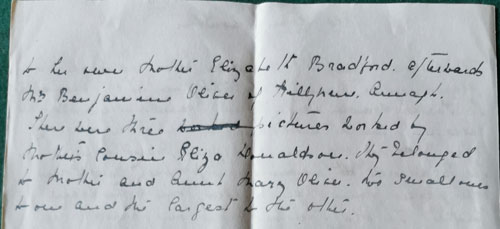 to her own mother Elizabeth Bradford. afterwards
Mrs Benjamin Oliver of Armagh.
There were three pictures worked by
Mother's Cousin Eliza Donaldson. They belonged
to Mother and Aunt Mary Oliver. two small ones
to one and the largest to the other.